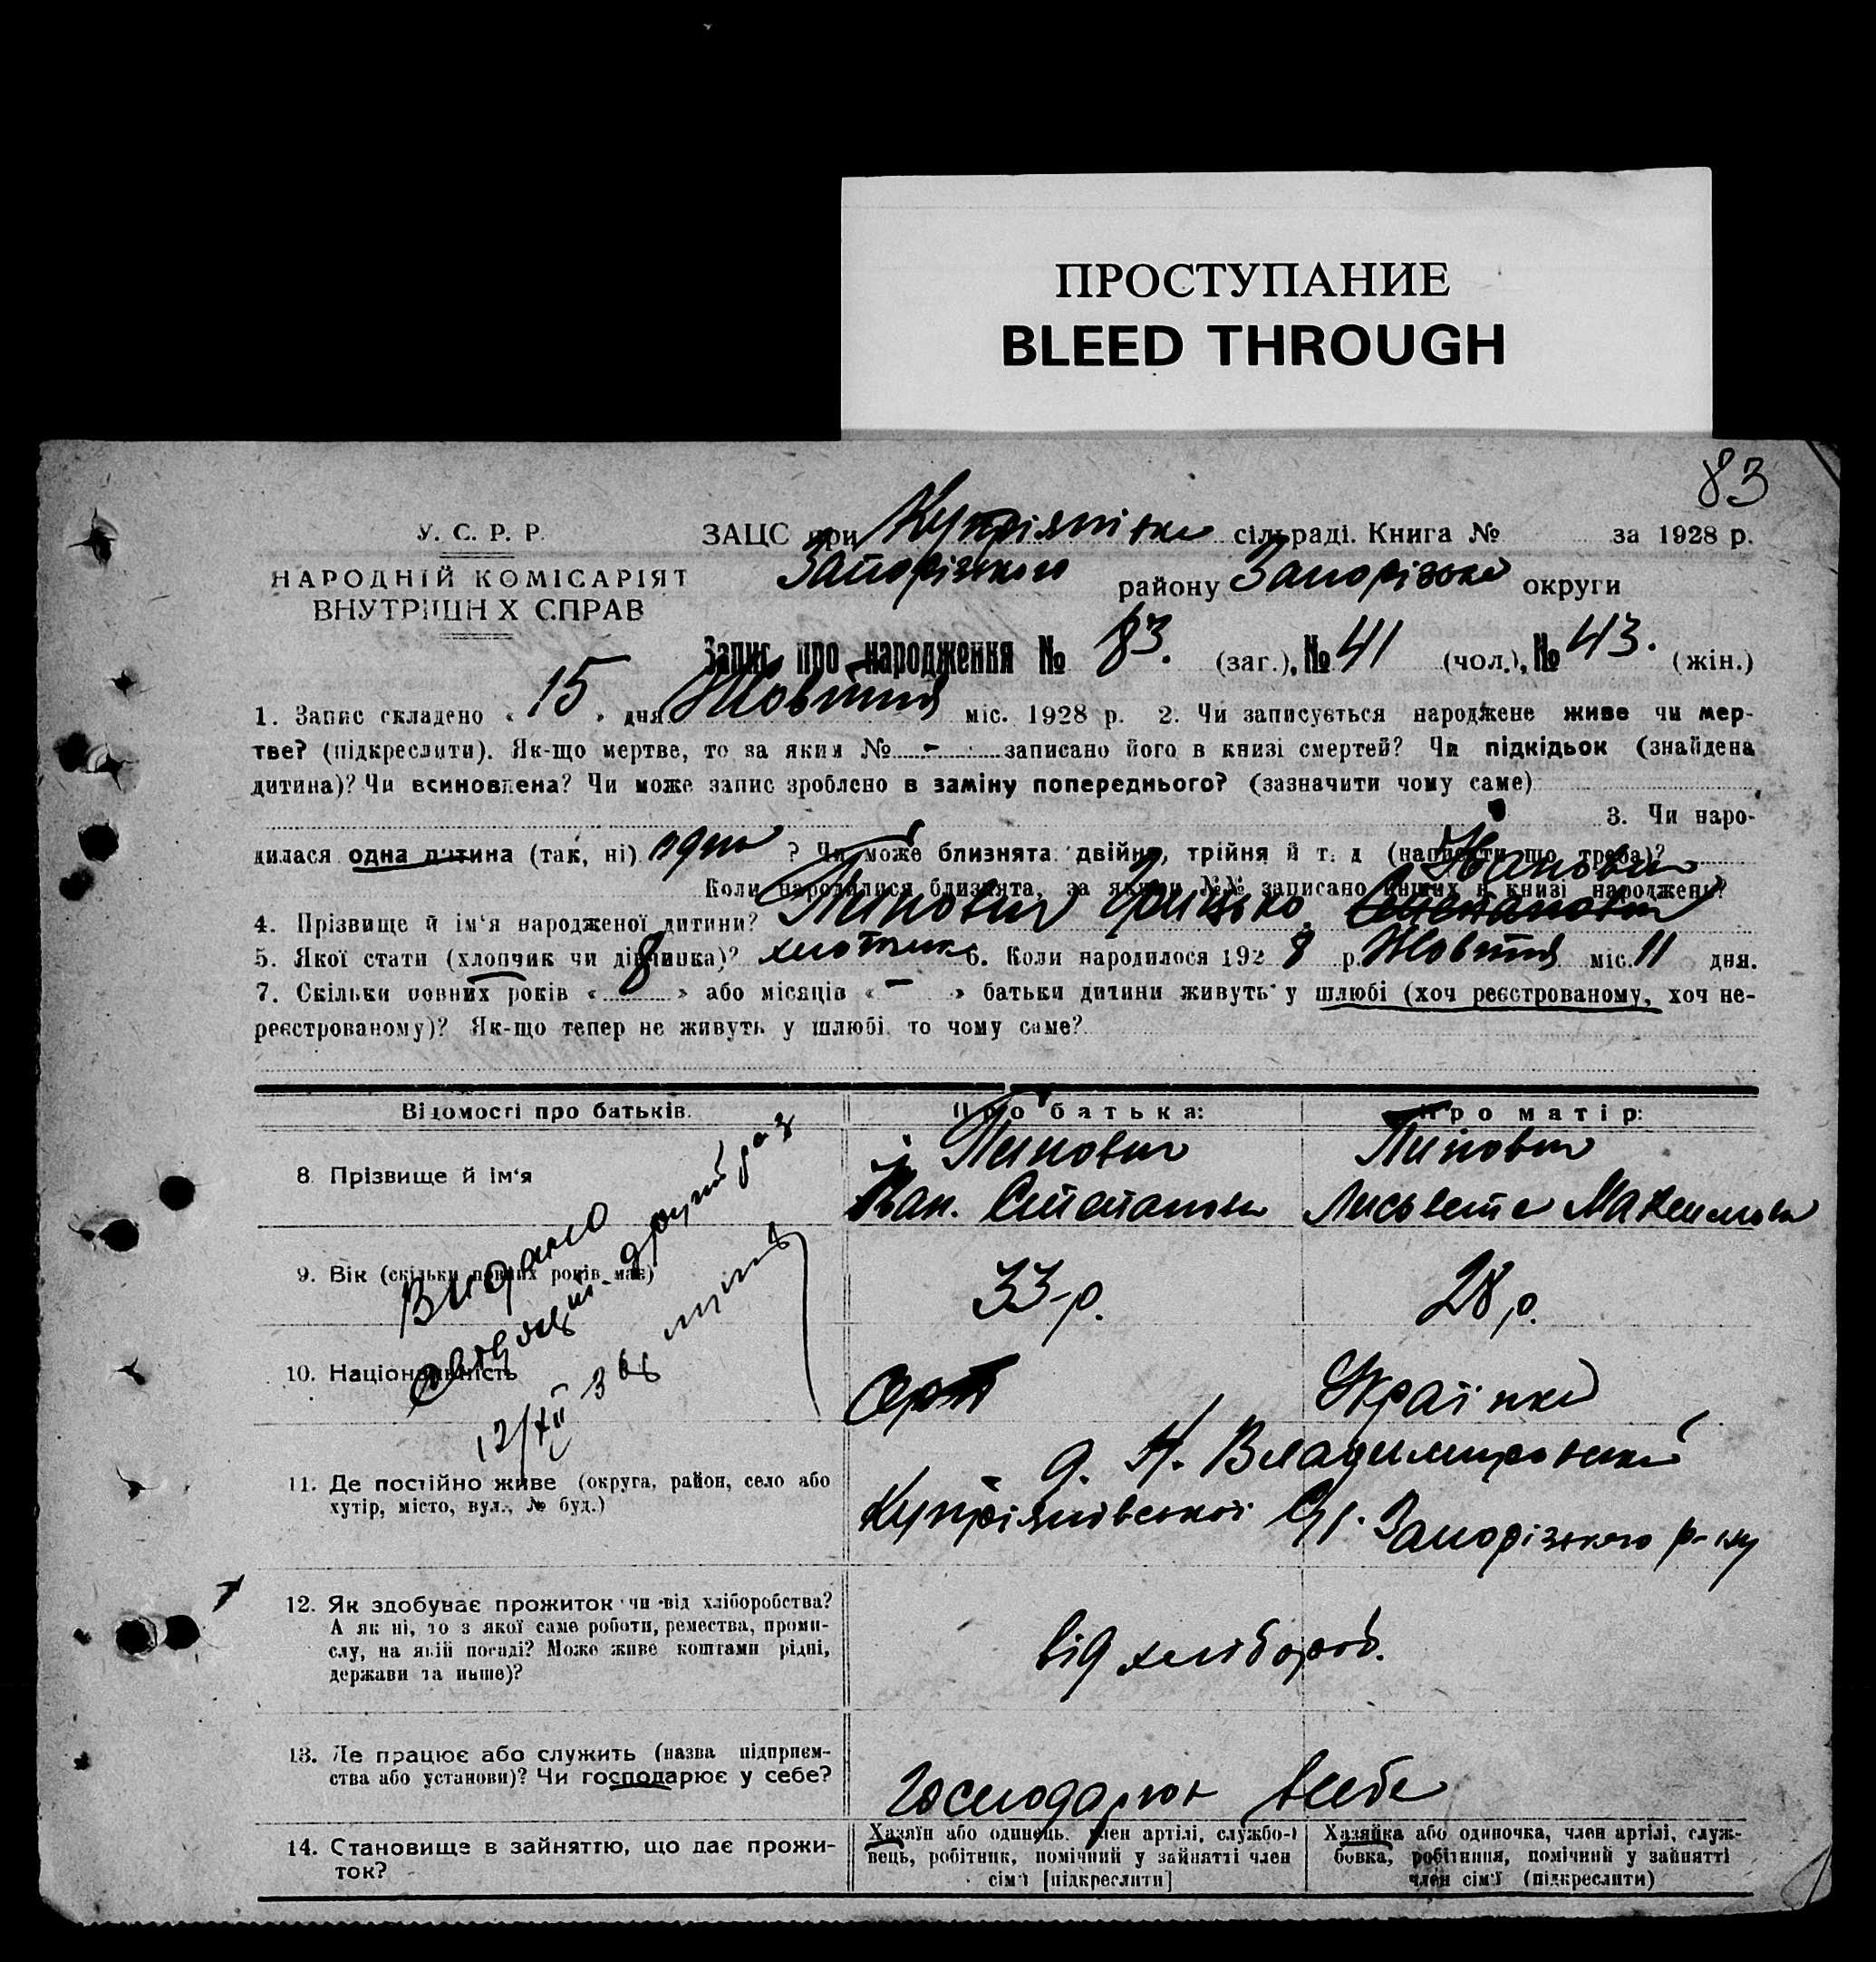 ПРОСТУПАНИЕ
BLEED THROUGH
83
У. С. Р. Р.
НАРОДНІЙ КОМІСАРІЯТ
ВНУТРІШН Х СПРАВ
ЗАЦС при Купріянівка сільраді. Книга № за 1928 р.
Запорізького району Запорізько округи
Запис про народження № 83. (заг.), № 41 (чол.), № 43. (жін.)
1. Запис складено « 15 » дня Жовтня міс. 1928 р. 2. Чи записується народжене живе чи мер-
тве? (підкреслити). Як-що мертве, то за яким № - записано його в книзі смертей? Чи підкідьок (знайдена
дитина)? Чи всиновлена? Чи може запис зроблено в заміну попереднього? (зазначити чому саме)
3. Чи наро-
дилася одна дитина (так, ні) одна ? Чи може близнята двійня, трійня й т. д (написати що треба)?
Коли народилися близнята, за якими №№ записано инших в книзі народжень?
Іванович
4. Прізвище й ім'я народженої дитини? Грицько
5. Якої стати (хлопчик чи дівчинка)? хлопчик 6. Коли народилося 192 8 р. Жовтня міс. 11 дня.
7. Скільки повних років « 8 » або місяців « - » батьки дитини живуть у шлюбі (хоч реєстрованому, хоч не-
реєстрованому)? Як-що тепер не живуть у шлюбі, то чому саме?
Відомості про батьків. Про батька: Про матір:
8. Прізвище й ім'я
Іван. Степанови Лисьвета Максимовна
9. Вік (скільки повних років має) 33-р. 28 р.
Видано
другий раз
12/XII 36
10. Національність Українка
11. Де постійно живе (округа, район, село або
хутір, місто, вул., № буд.)
д. Н. Владимировской
Купріянівської С/Р. Запорізького р-ну
12. Як здобуває прожиток чи від хліборобства?
А як ні, то з якої саме роботи, ремества, проми-
слу, на якій посаді? Може живе коштами рідні,
держави та инше)?
від хлібороб.
13. Де працює або служить (назва підприєм-
ства або установи)? Чи господарює у себе?
Господарює всебе
14. Становище в зайняттю, що дає прожи-
ток?
Хазяїн або одинець, член артілі, службо-
вець, робітник, помічний у зайнятті член
сім'ї [підкреслити]
Хазяйка або одиночка, член артілі, служ-
бовка, робітниця, помічний у зайнятті
член сім'ї (підкреслити)